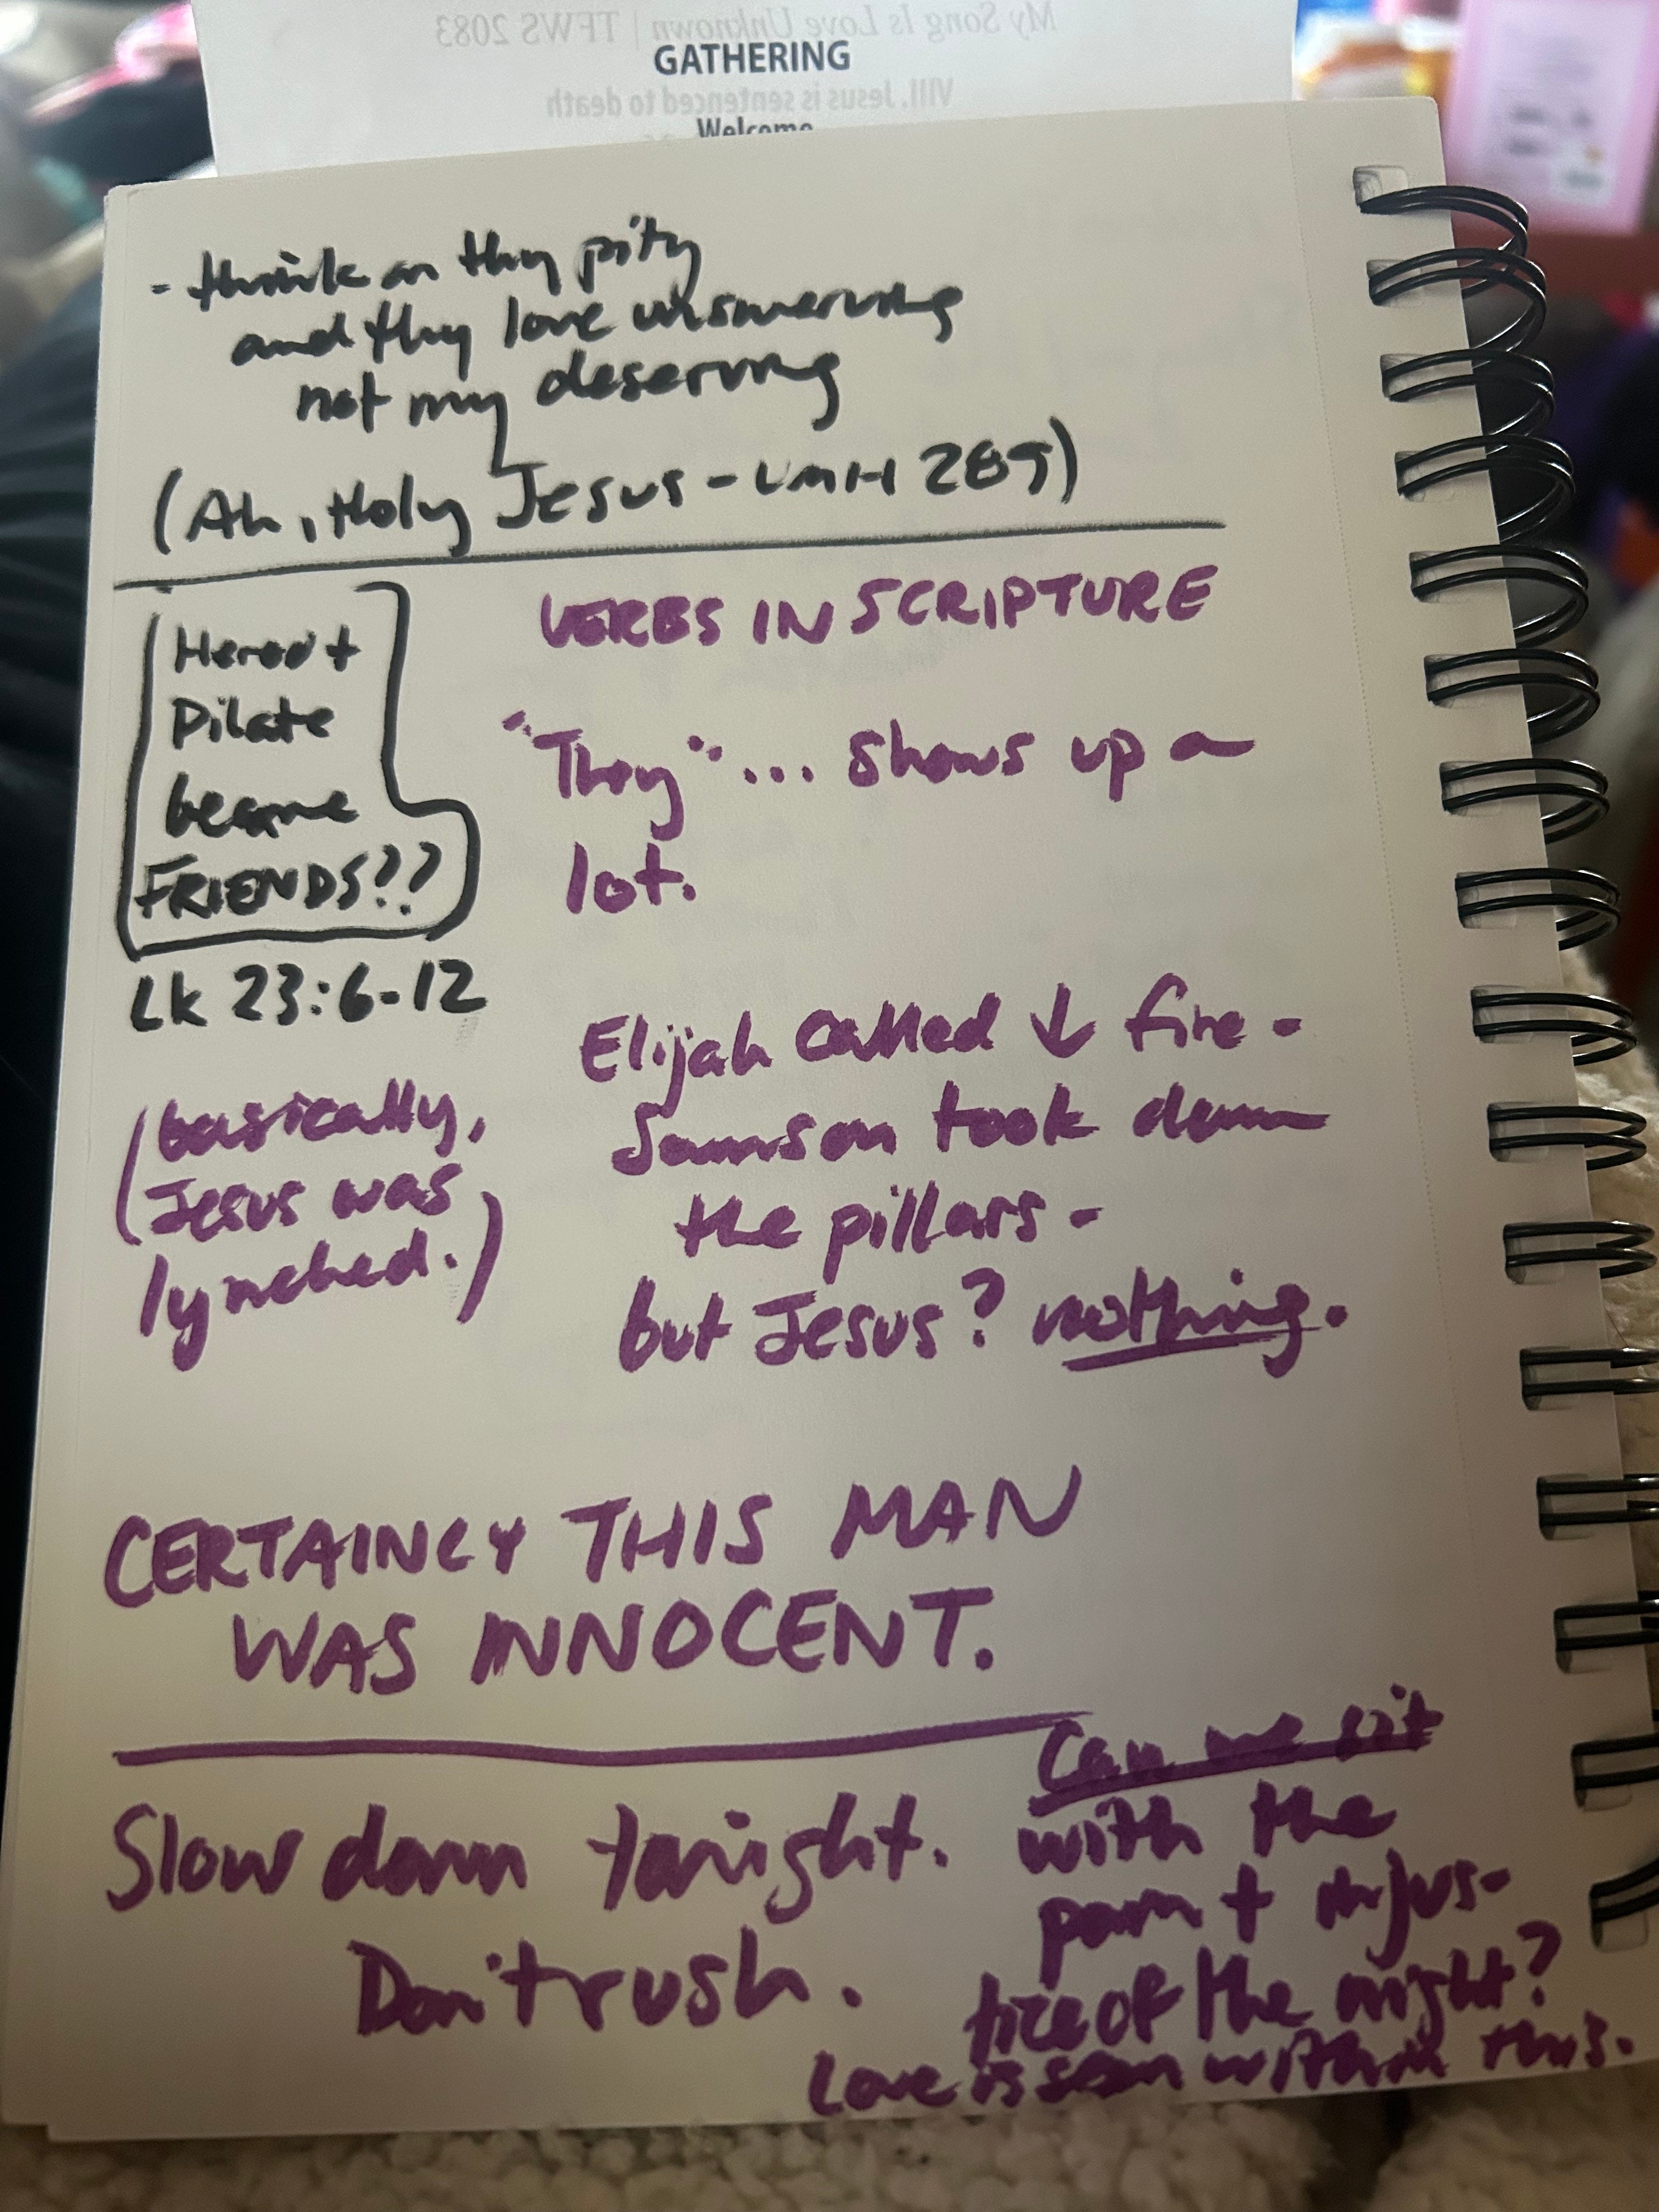 My Song Is Love Unknown | TFWS 2083
GATHERING
VIII. Jesus is sentenced to death
Welcome
- think on thy pity
and thy love unswerving
not my deserving
(Ah, Holy Jesus - UMH 289)
Herod +
Pilate
became
FRIENDS??
Lk 23:6-12
(basically,
Jesus was
lynched.)
VERBS IN SCRIPTURE
"They"... shows up a
lot.
Elijah called ↓ fire -
Samson took down
the pillars -
but Jesus? nothing.
CERTAINLY THIS MAN
WAS INNOCENT.
Slow down tonight.
Don't rush.
Can we sit
with the
pain + injus-
tice of the night?
Love is seen within this.